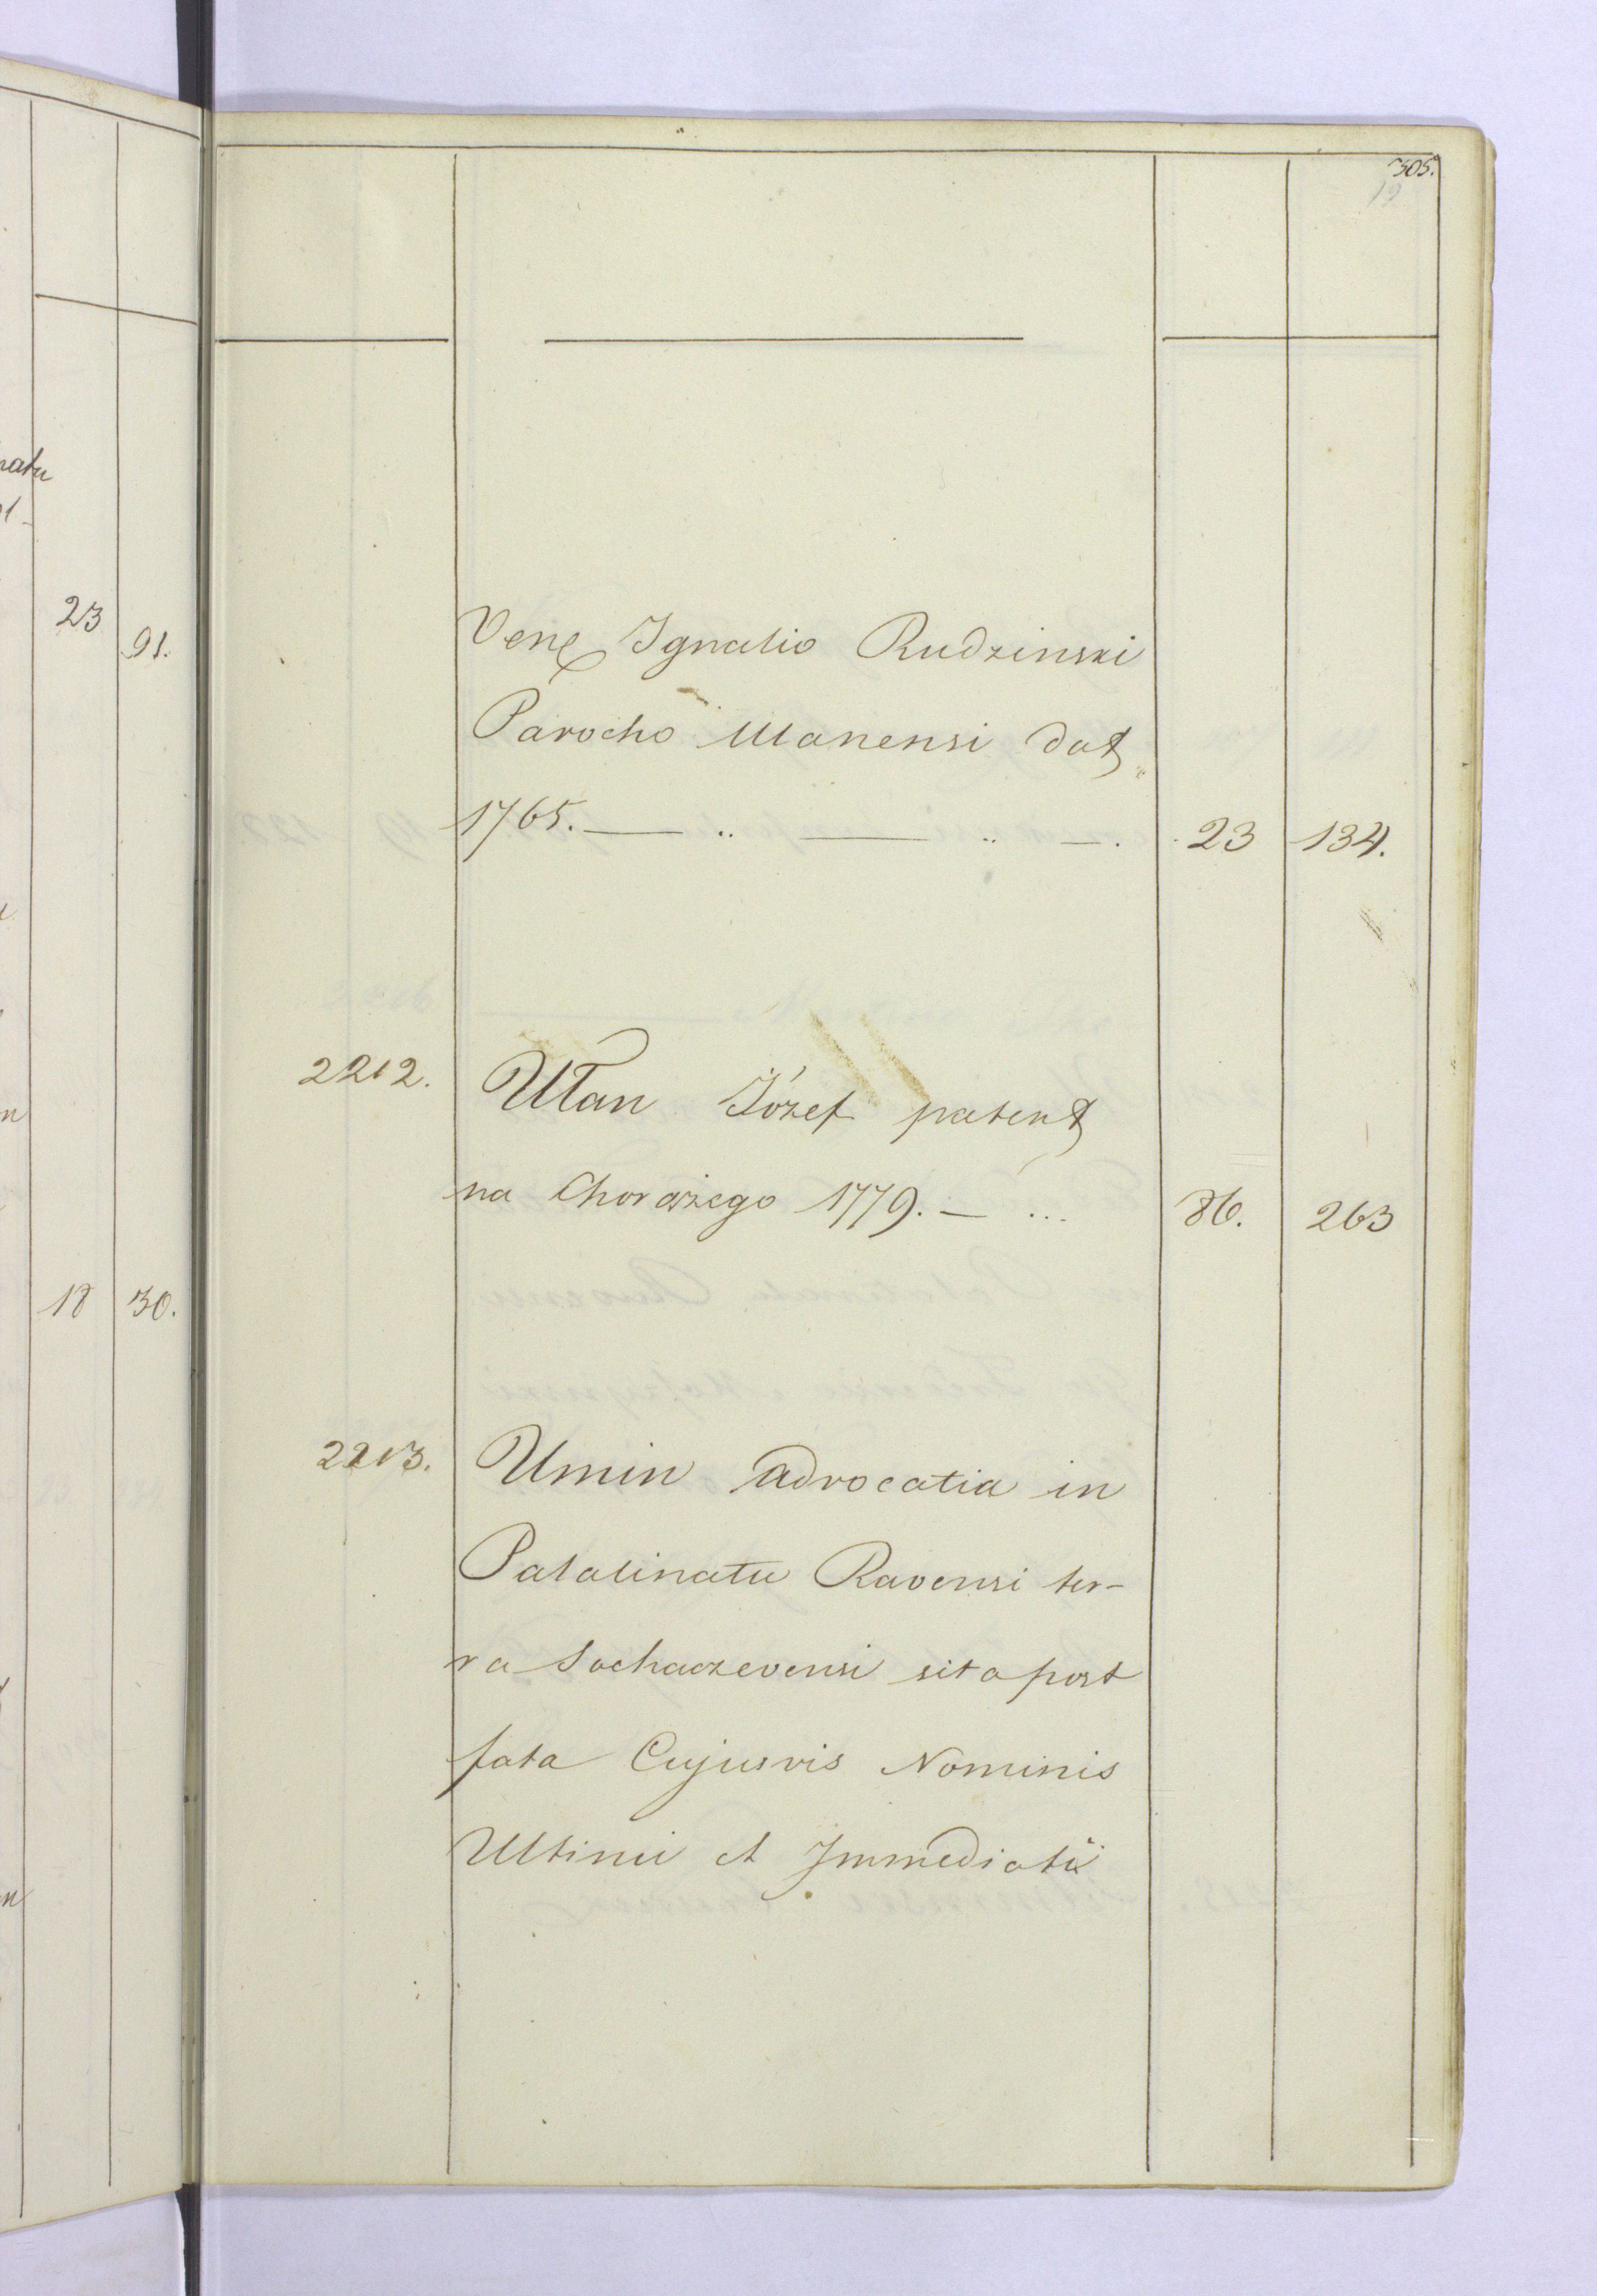 305.
19
natu
23
91.
18
30.
Vene Ignatio Rudzinski
Parocho Ulanensi dat
1765. — .. — .. — . 23 134.
2212. Ułan Józef patent
na Chorążego 1779. — ... 86. 263
2213. Umin Advocatia in
Palatinatu Ravensi ter-
ra Sochaczevensi sita post
fata Cujusvis Nominis
Ultimi et Immediati